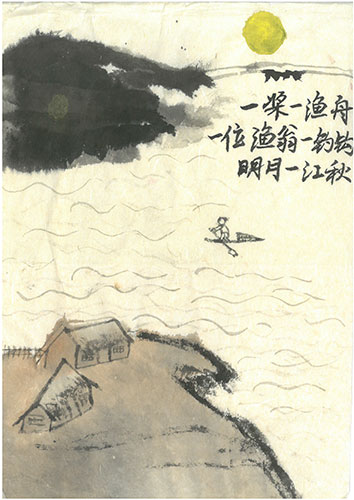 一桨一渔舟
一位渔翁一钓钩
明月一江秋